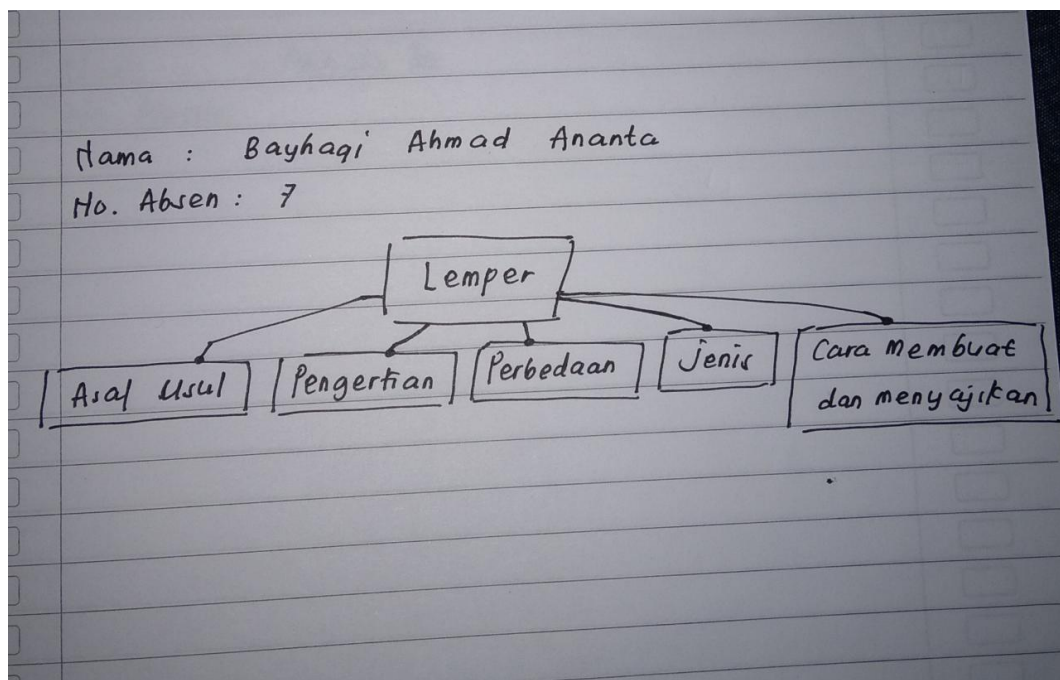 Nama : Bayhaqi Ahmad Ananta
No. Absen : 7
Lemper
Asal Usul
Pengertian
Perbedaan
Jenis
Cara Membuat
dan menyajikan